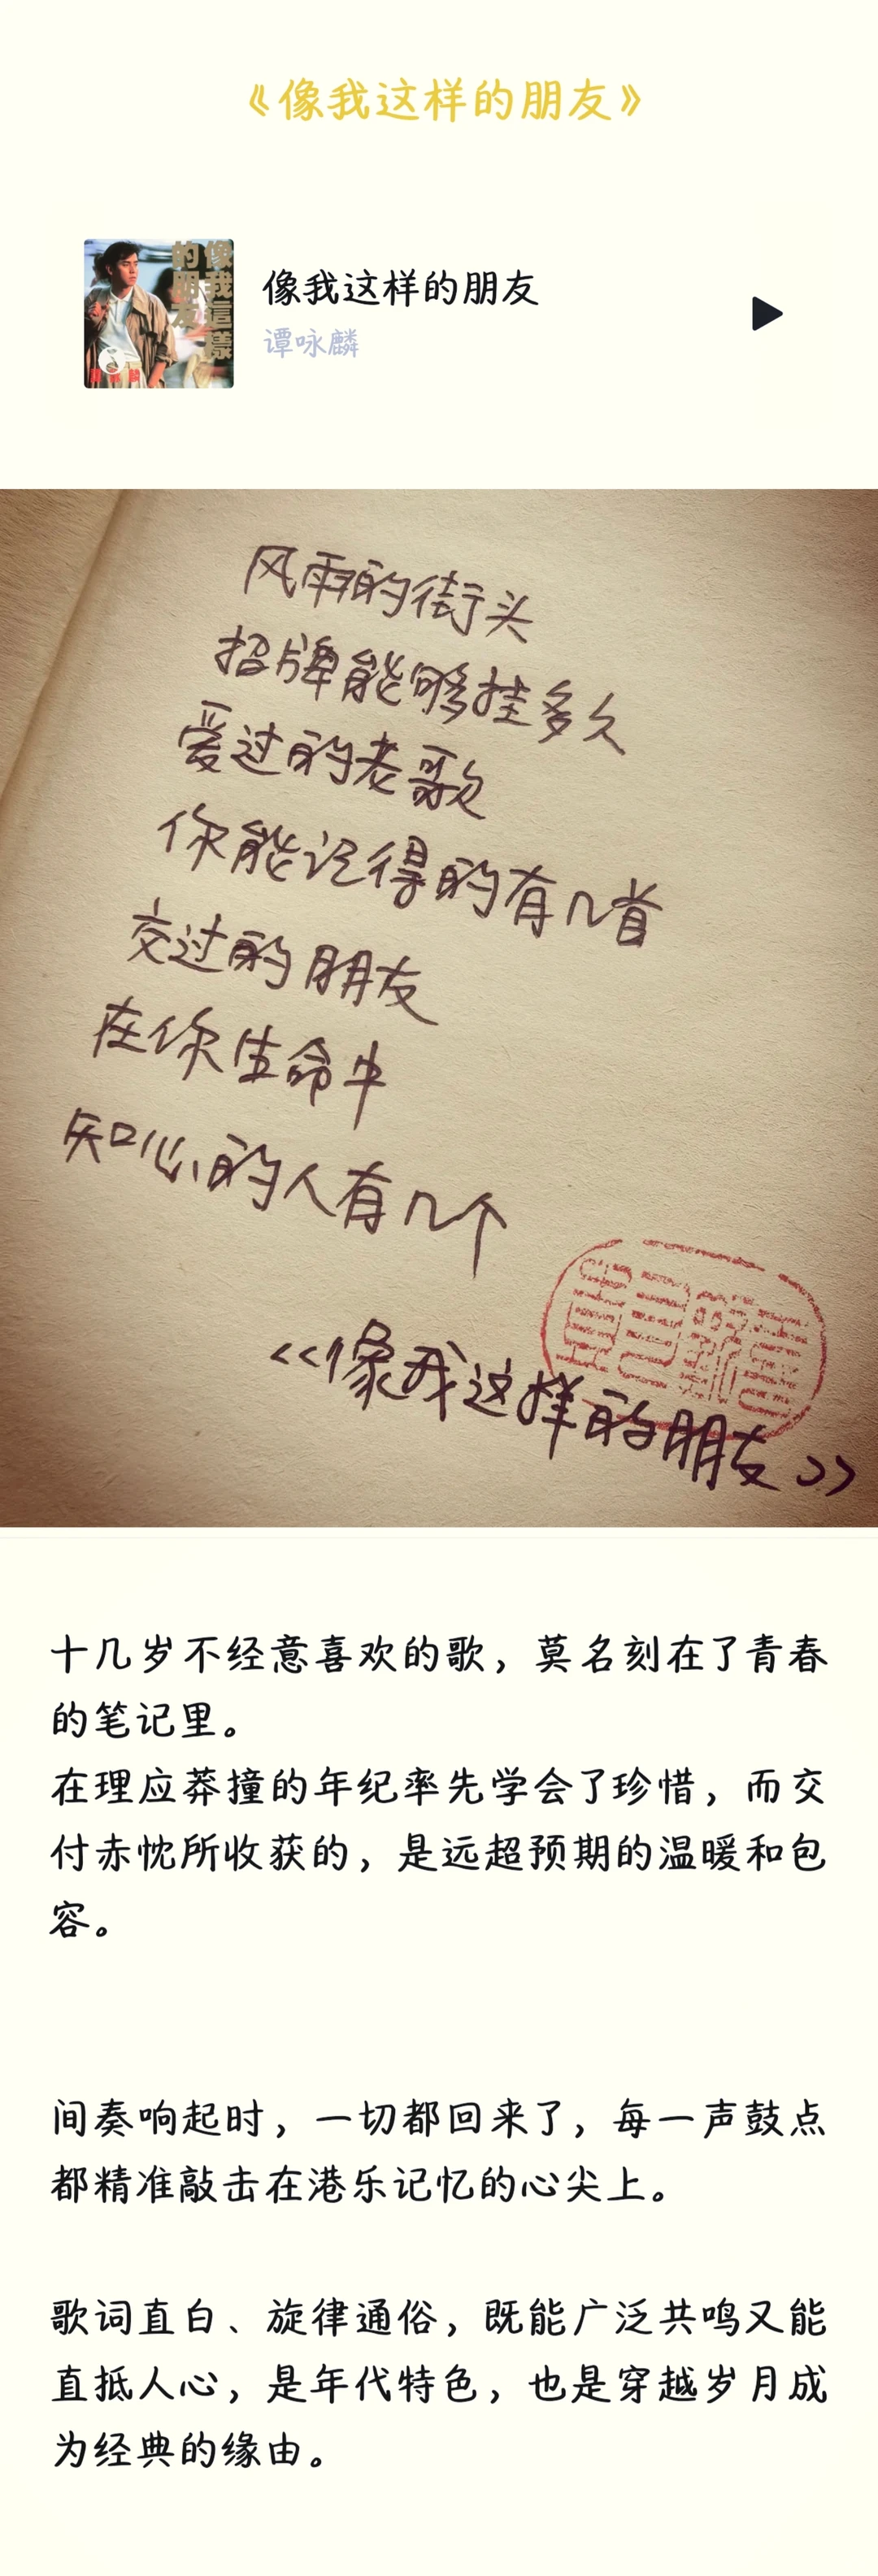 《像我这样的朋友》
像我這樣
的朋友
像我这样的朋友
谭咏麟
风雨的街头
招牌能够挂多久
爱过的老歌
你能记得的有几首
交过的朋友
在你生命中
知心的人有几个
<<像我这样的朋友>>
十几岁不经意喜欢的歌，莫名刻在了青春
的笔记里。
在理应莽撞的年纪率先学会了珍惜，而交
付赤忱所收获的，是远超预期的温暖和包
容。
间奏响起时，一切都回来了，每一声鼓点
都精准敲击在港乐记忆的心尖上。
歌词直白、旋律通俗，既能广泛共鸣又能
直抵人心，是年代特色，也是穿越岁月成
为经典的缘由。